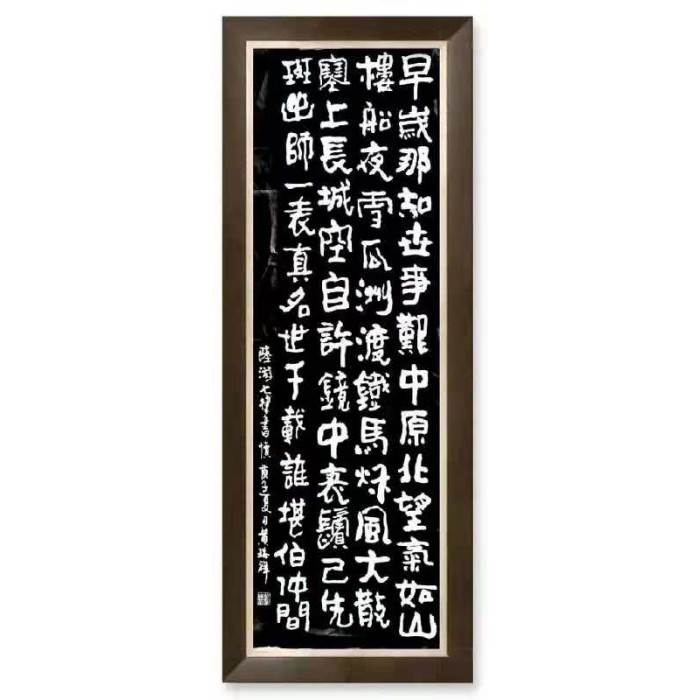 早歲那知世事艱中原北望氣如山
樓船夜雪瓜洲渡鐵馬秋風大散
塞上長城空自許鏡中衰鬢已先
斑出師一表真名世千載誰堪伯仲間
陸游七律書憤 庚子夏月黄